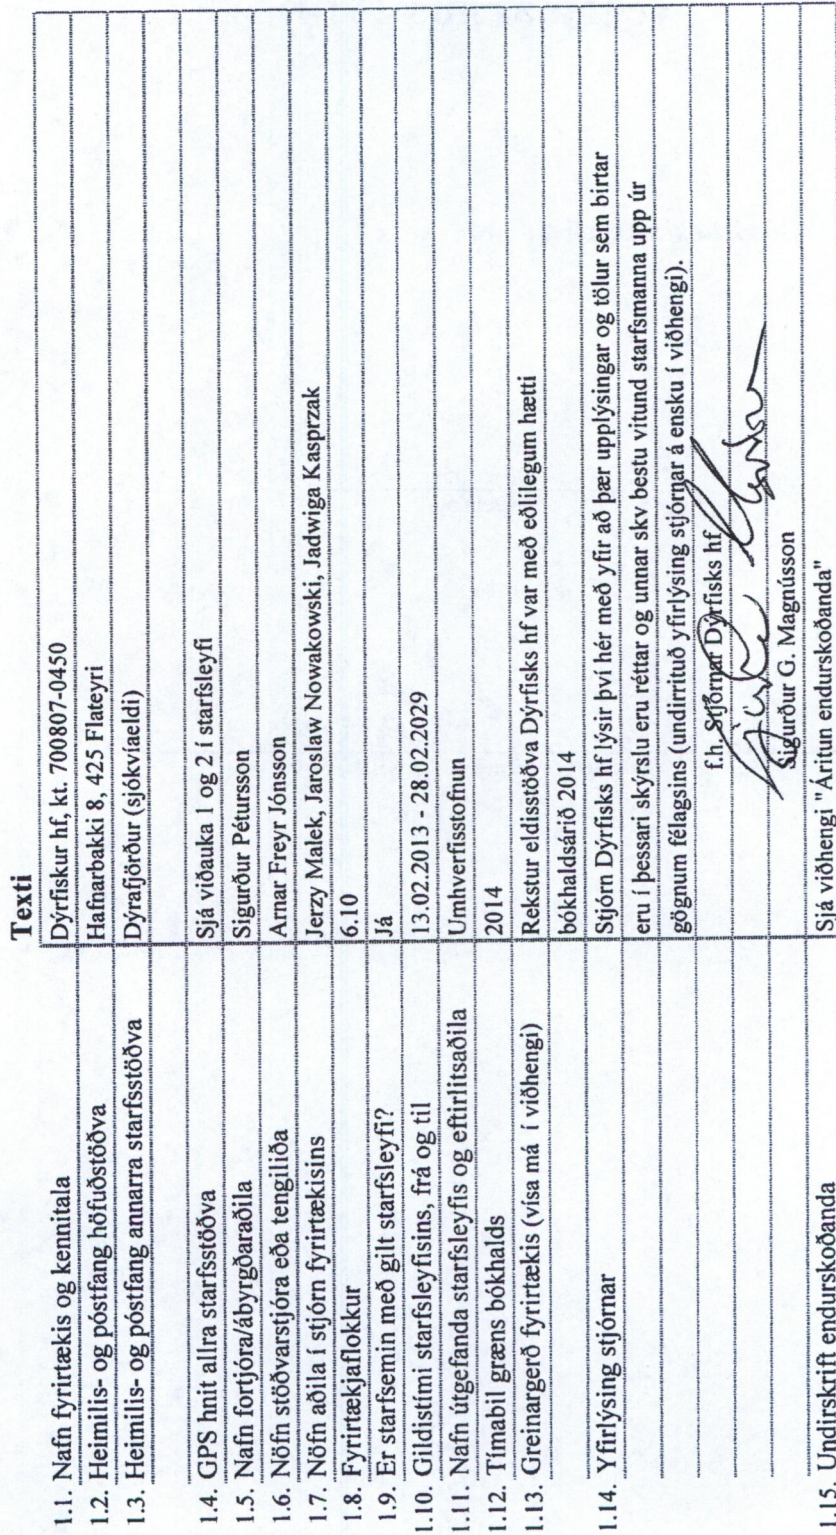 Texti
1.1. Nafn fyrirtækis og kennitala Dýrfiskur hf, kt. 700807-0450
1.2. Heimilis- og póstfang höfuðstöðva Hafnarbakki 8, 425 Flateyri
1.3. Heimilis- og póstfang annarra starfsstöðva Dýrafjörður (sjókvíaeldi)
1.4. GPS hnit allra starfsstöðva Sjá viðauka 1 og 2 í starfsleyfi
1.5. Nafn fortjóra/ábyrgðaraðila Sigurður Pétursson
1.6. Nöfn stöðvarstjóra eða tengiliða Arnar Freyr Jónsson
1.7. Nöfn aðila í stjórn fyrirtækisins Jerzy Malek, Jaroslaw Nowakowski, Jadwiga Kasprzak
1.8. Fyrirtækjaflokkur 6.10
1.9. Er starfsemin með gilt starfsleyfi? Já
1.10. Gildistími starfsleyfisins, frá og til 13.02.2013 - 28.02.2029
1.11. Nafn útgefanda starfsleyfis og eftirlitsaðila Umhverfisstofnun
1.12. Tímabil græns bókhalds 2014
1.13. Greinargerð fyrirtækis (vísa má í viðhengi) Rekstur eldisstöðva Dýrfisks hf var með eðlilegum hætti
bókhaldsárið 2014
1.14. Yfirlýsing stjórnar Stjórn Dýrfisks hf lýsir því hér með yfir að þær upplýsingar og tölur sem birtar
eru í þessari skýrslu eru réttar og unnar skv bestu vitund starfsmanna upp úr
gögnum félagsins (undirrituð yfirlýsing stjórnar á ensku í viðhengi).
f.h. Stjórnar Dýrfisks hf
Sigurður G. Magnússon
1.15. Undirskrift endurskoðanda Sjá viðhengi "Áritun endurskoðanda"